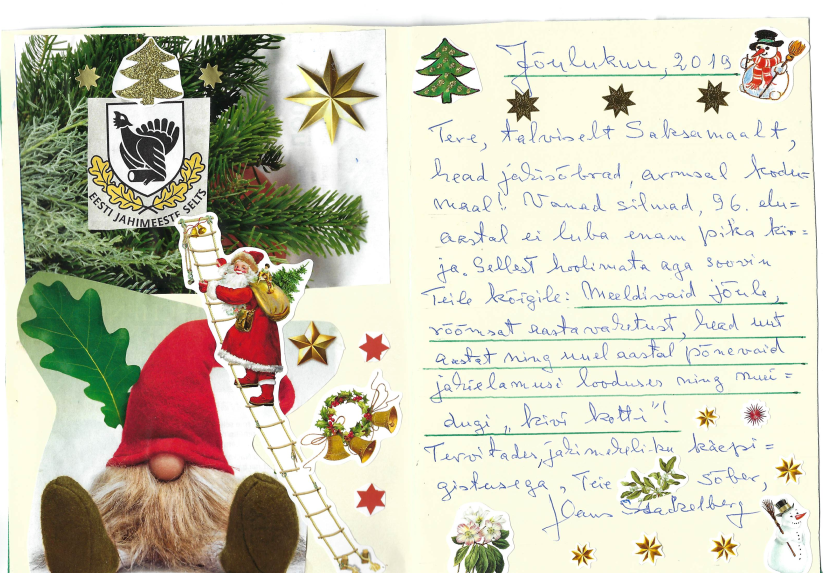 EESTI JAHIMEESTE SELTS
Jõulukuu, 2019
Tere, talviselt Saksamaalt,
head jahisõbrad, armsal kodu=
maal! Vanad silmad, 96. elu=
aastal ei luba enam pikka kir=
ja. Sellest hoolimata aga soovin
Teile kõigile: Meeldivaid jõule,
rõõmsat aastavahetust, head uut
aastat ning uuel aastal põnevaid
jahielamusi looduses ning mui=
dugi „kivi kotti"!
Tervitades, jahimeheliku käepi=
gistusega, Teie sõber,
Hans Stackelberg